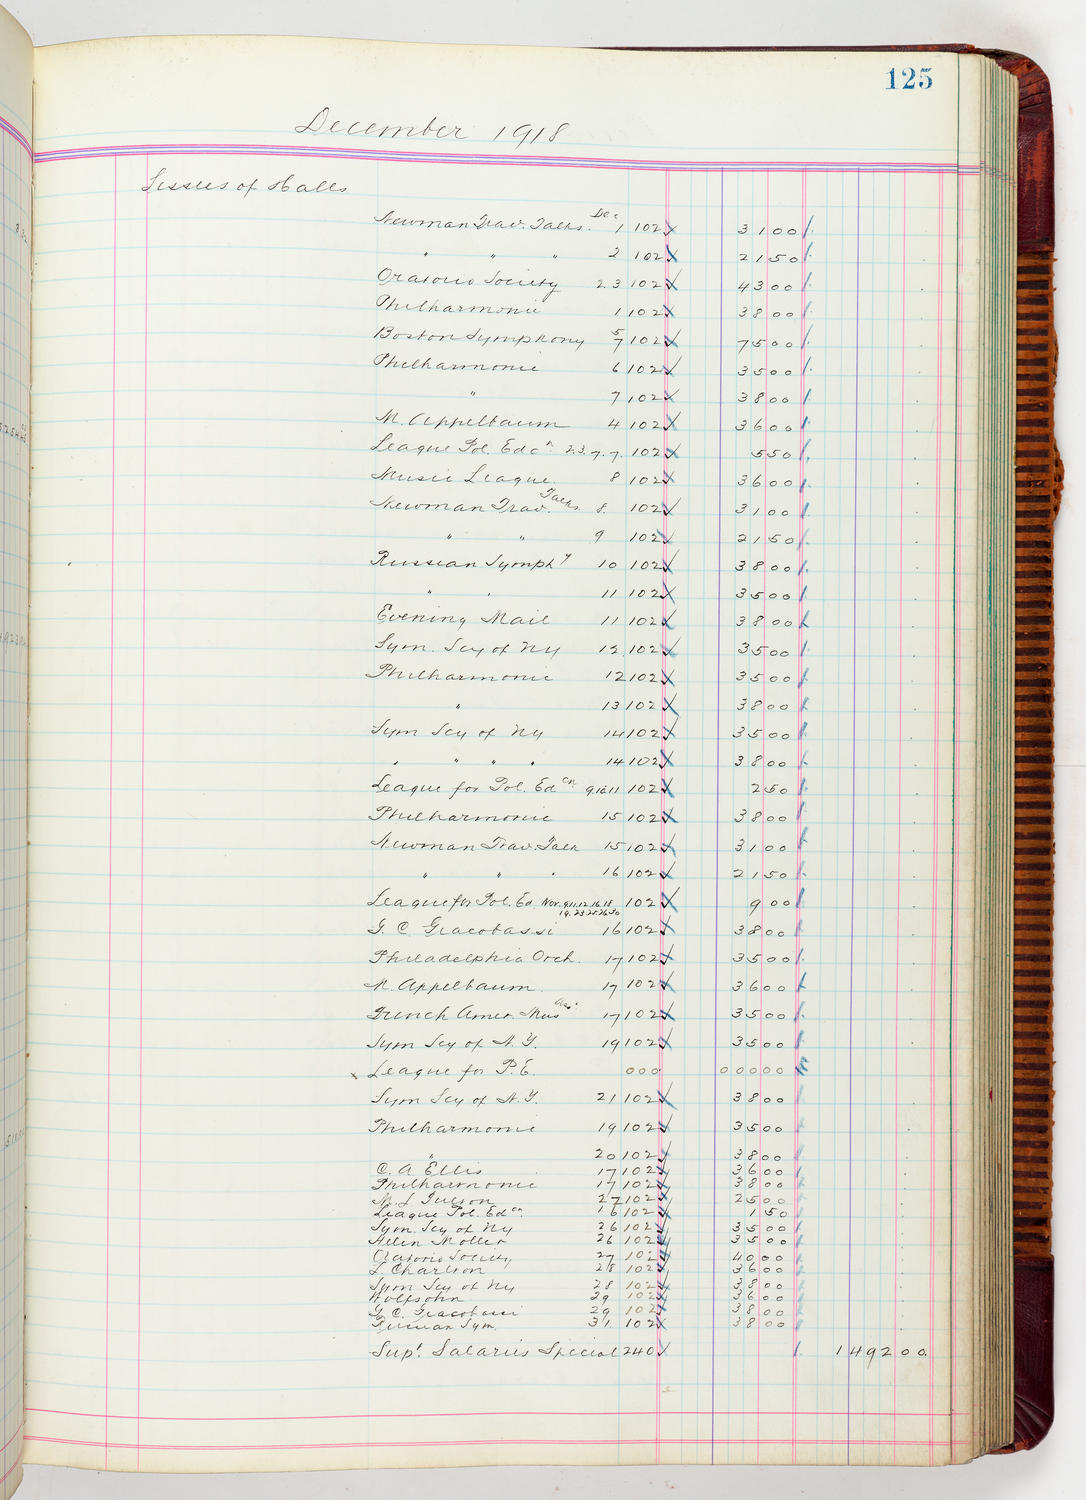 125
December 1918
Issues of Halls
Newman Trav. Talks. Dec 1 102 3100
" " " 2 102 2150
Oratorio Society 2 3 102 4300
Philharmonic 1 102 3800
Boston Symphony 5 7 102 7500
Philharmonic 6 102 3500
" 7 102 3800
M. Appelbaum 4 102 3600
League Pol. Edcn 2.3.7.7. 102 550
Music League 8 102 3600
Newman Trav. Talks 8. 102 3100
" " 9 102 2150
Russian Symphy 10 102 3800
" " 11 102 3500
Evening Mail 11 102 3800
Sym. Scy of NY 12 102 3500
Philharmonic 12 102 3500
" 13 102 3800
Sym Scy of NY 14 102 3500
" " " " 14 102 3800
League for Pol. Edcn 9.10.11 102 250
Philharmonic 15 102 3800
Newman Trav. Talk 15 102 3100
" " " 16 102 2150
League for Pol. Ed. Nov. 9.11.12.16.18 102 900
19.23.25.26.30
G. C. Gracobassi 16 102 3800
Philadelphia Orch. 17 102 3500
M. Appelbaum. 17 102 3600
French Amer. Mus Ass. 17 102 3500
Sym Scy of N.Y. 19 102 3500
x League for P.E. 000 00000
Sym Scy of N.Y. 21 102 3800
Philharmonic 19 102 3500
" 20 102 3800
C. A. Ellis 17 102 3600
Philharmonic 17 102 3800
M. L. 27 102 2500
League Pol. Edcn 16 102 150
Sym. Scy of NY 26 102 3500
Helen Moller 26 102 3500
Oratorio Society 27 102 4000
L Charlson 28 102 3600
Sym Scy of NY 28 102 3800
Wolfsohn 29 102 3600
G. C. Gracobassi 29 102 3800
Russian Sym. 31. 102 3800
Supt. Salaries Special 240 149200